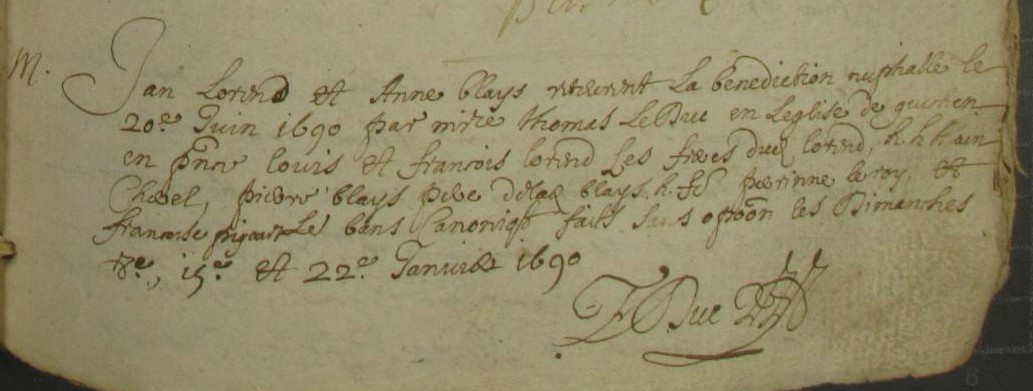 M. Jan Lorand et Anne blays receurent La benediction nuptialle le
20e Juin 1690 par mire Thomas LeDuc en Leglise de guemen
en pnce louis et francois lorand Les freres dud lorand, h. h.
pierre blays pere de lad blays, h. ff perrinne leroy, et
francoise Les bans Canoniqt faits sans opoon les Dimanches
8e, 15e et 22e Janvier 1690
T Duc